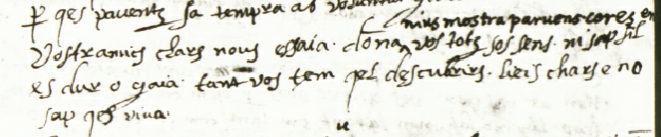 qes pavents sa tempra ab
nius mostra parvens cores en
Vostramics clars nous essaia. dona vos totz sos sens. ni sap sil
es dur o gaia. tant vos tem pel descubrirs. lieis chars e no
sap qes viva.